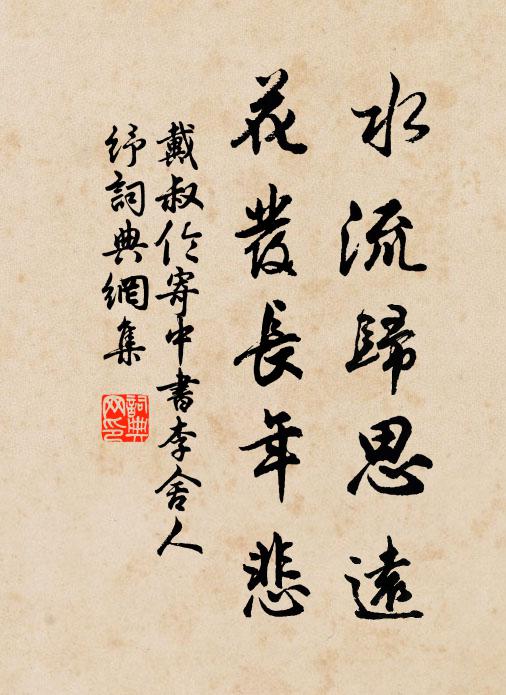 水流歸思遠
花發長年悲
戴叔倫寄中書李舍人
紓詞典網集
詞典
網印